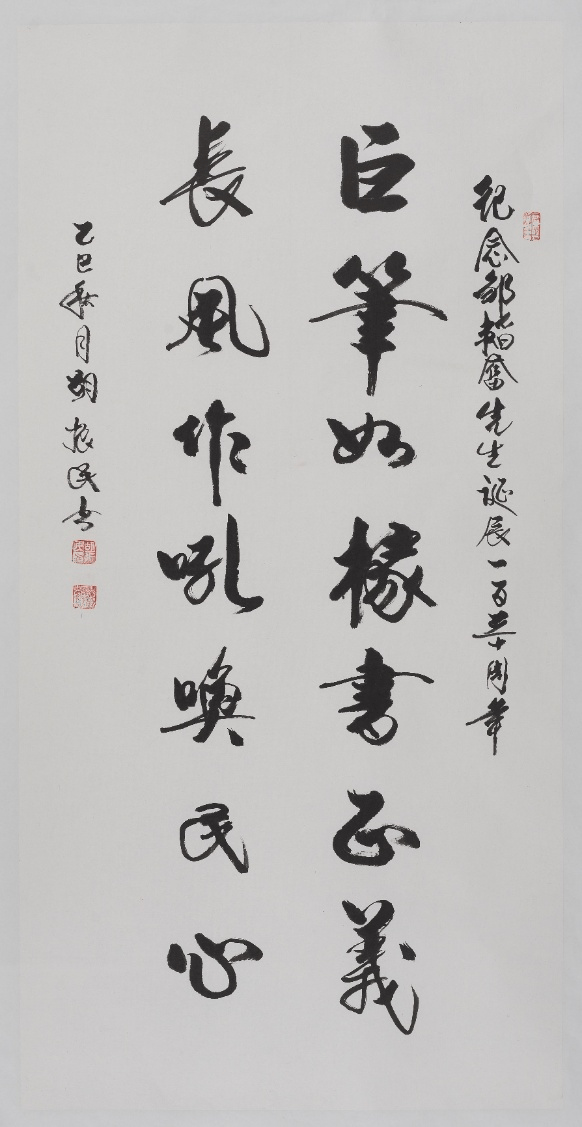 紀念鄒韜奮先生誕辰一百三十周年
巨筆如椽書正義
長風作吼喚民心
乙巳秋月胡振民书